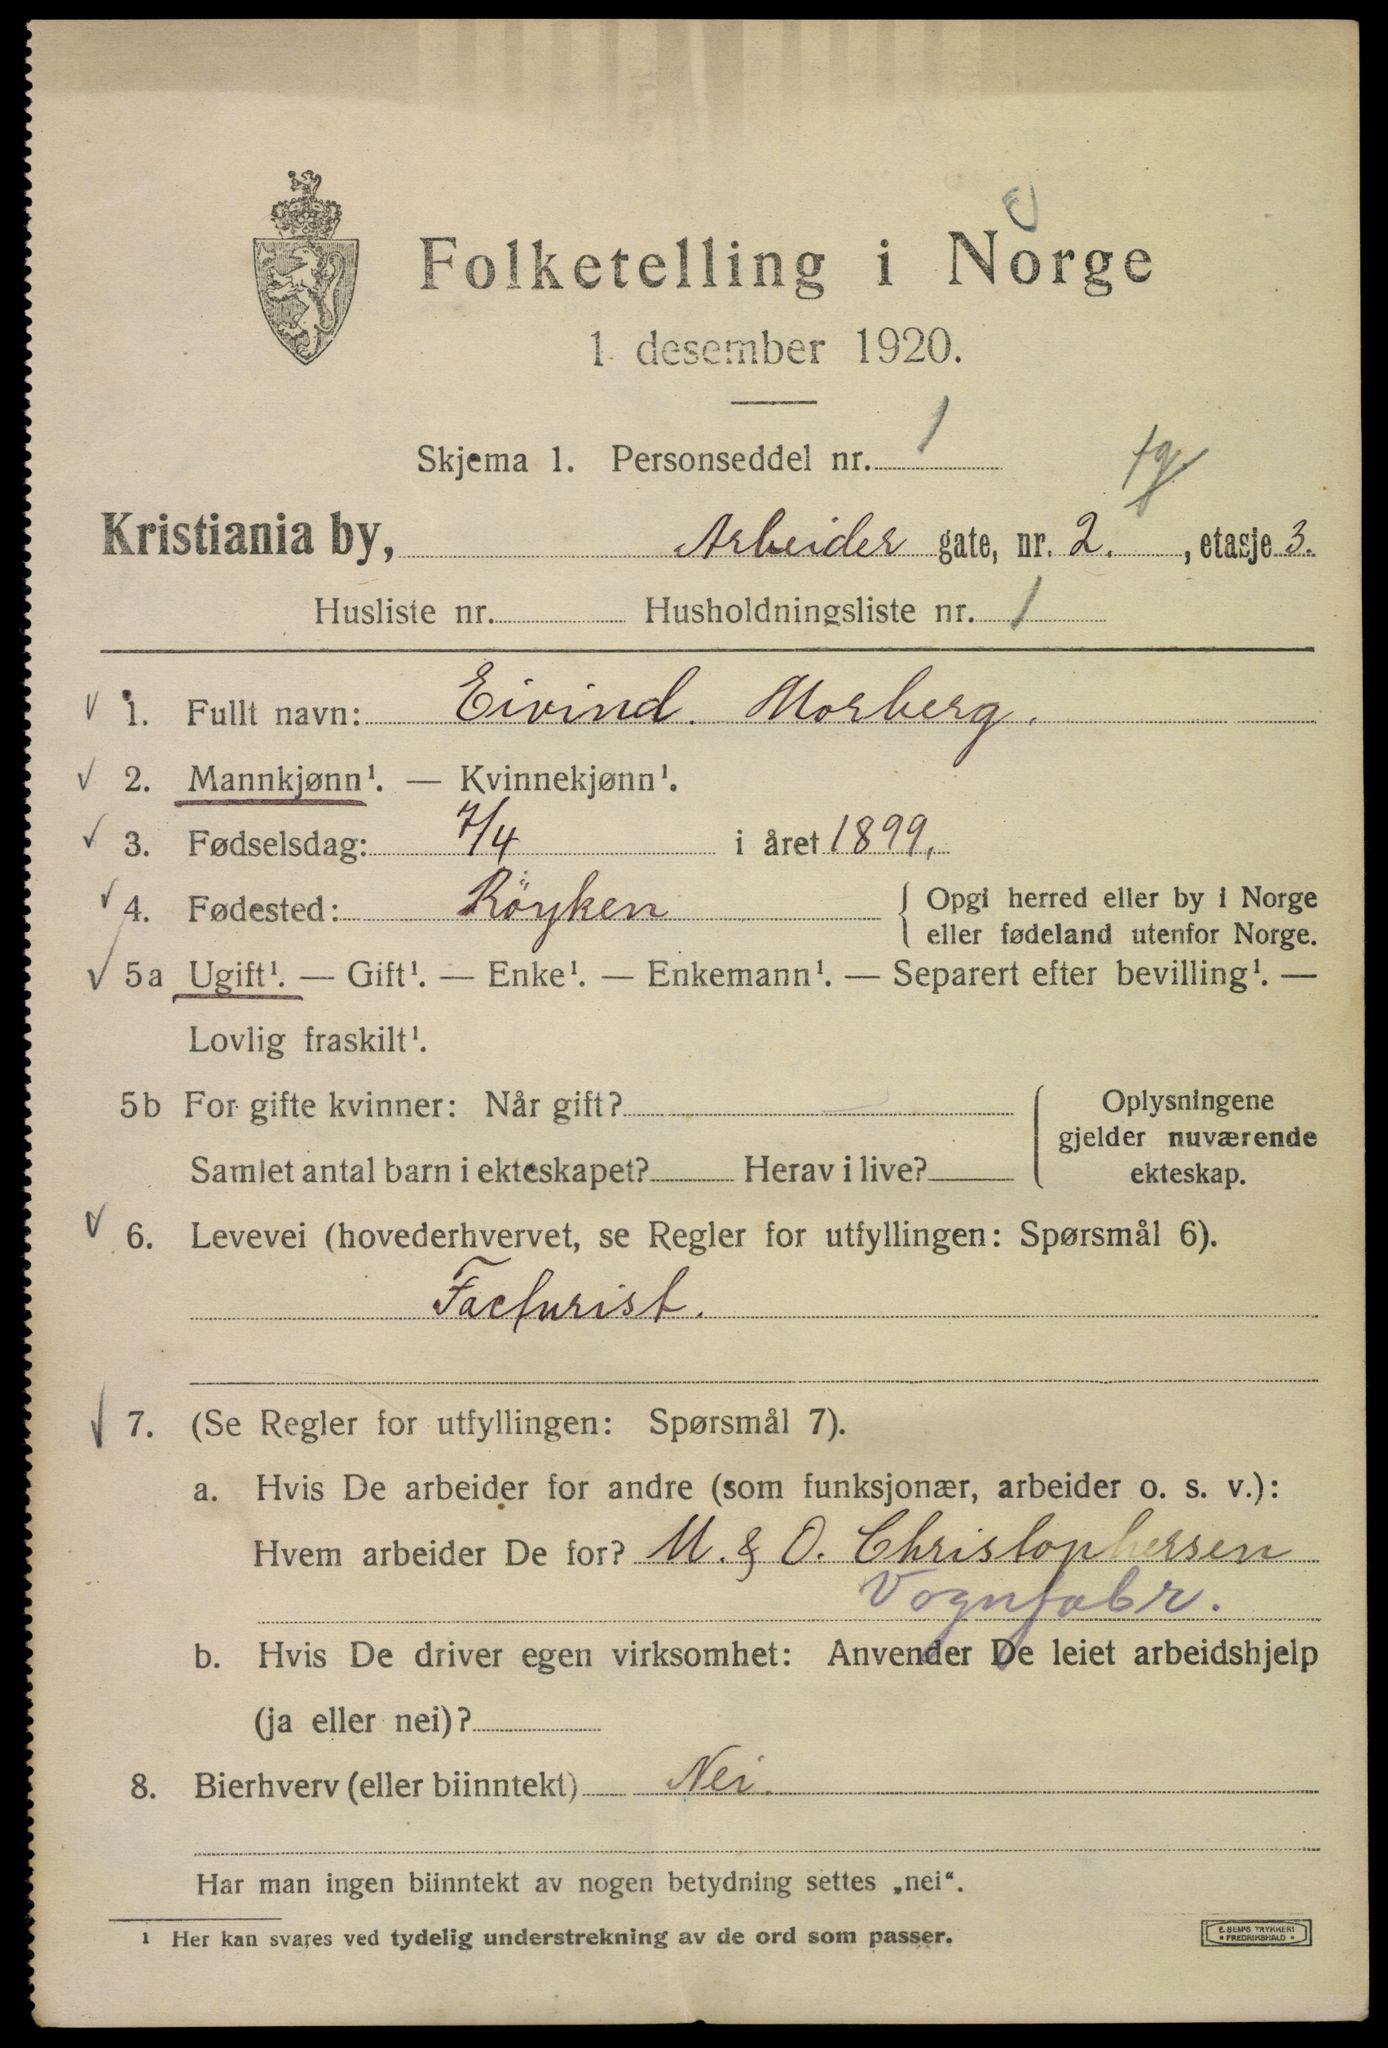 Folketelling i Norge
1. desember 1920.
Skjema 1. Personseddel nr. 1
Kristiania by, Arbeider gate, nr. 2. , etasje 3.
Husliste nr. Husholdningsliste nr. 1
1. Fullt navn: Eivind Morberg.
2. Mannkjønn¹. — Kvinnekjønn¹.
3. Fødselsdag: 7/4 i året 1899.
4. Fødested: Röyken { Opgi herred eller by i Norge
eller fødeland utenfor Norge.
5a Ugift¹. — Gift¹. — Enke¹. — Enkemann¹. — Separert efter bevilling¹. —
Lovlig fraskilt¹.
5b For gifte kvinner: Når gift? { Oplysningene
gjelder nuværende
Samlet antal barn i ekteskapet? Herav i live? ekteskap.
6. Levevei (hovederhvervet, se Regler for utfyllingen: Spørsmål 6).
Facturist.
7. (Se Regler for utfyllingen: Spørsmål 7).
a. Hvis De arbeider for andre (som funksjonær, arbeider o. s. v.):
Hvem arbeider De for? M. & O. Christophersen
Vognfabr.
b. Hvis De driver egen virksomhet: Anvender De leiet arbeidshjelp
(ja eller nei)?
8. Bierhverv (eller biinntekt) Nei.
Har man ingen biinntekt av nogen betydning settes „nei“.
¹ Her kan svares ved tydelig understrekning av de ord som passer.
E. SEM'S TRYKKERI
• FREDRIKSHALD •